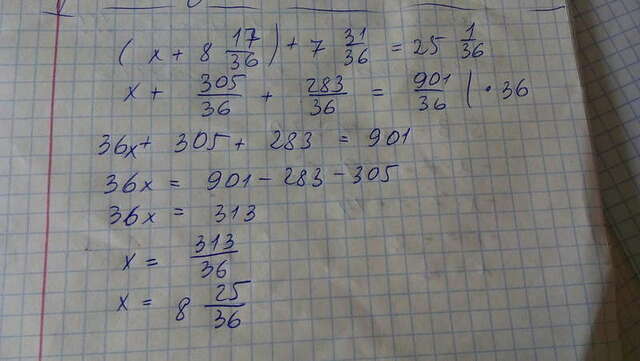 (x + 8 17/36) + 7 31/36 = 25 1/36
x + 305/36 + 283/36 = 901/36 | · 36
36x + 305 + 283 = 901
36x = 901 - 283 - 305
36x = 313
x = 313/36
x = 8 25/36